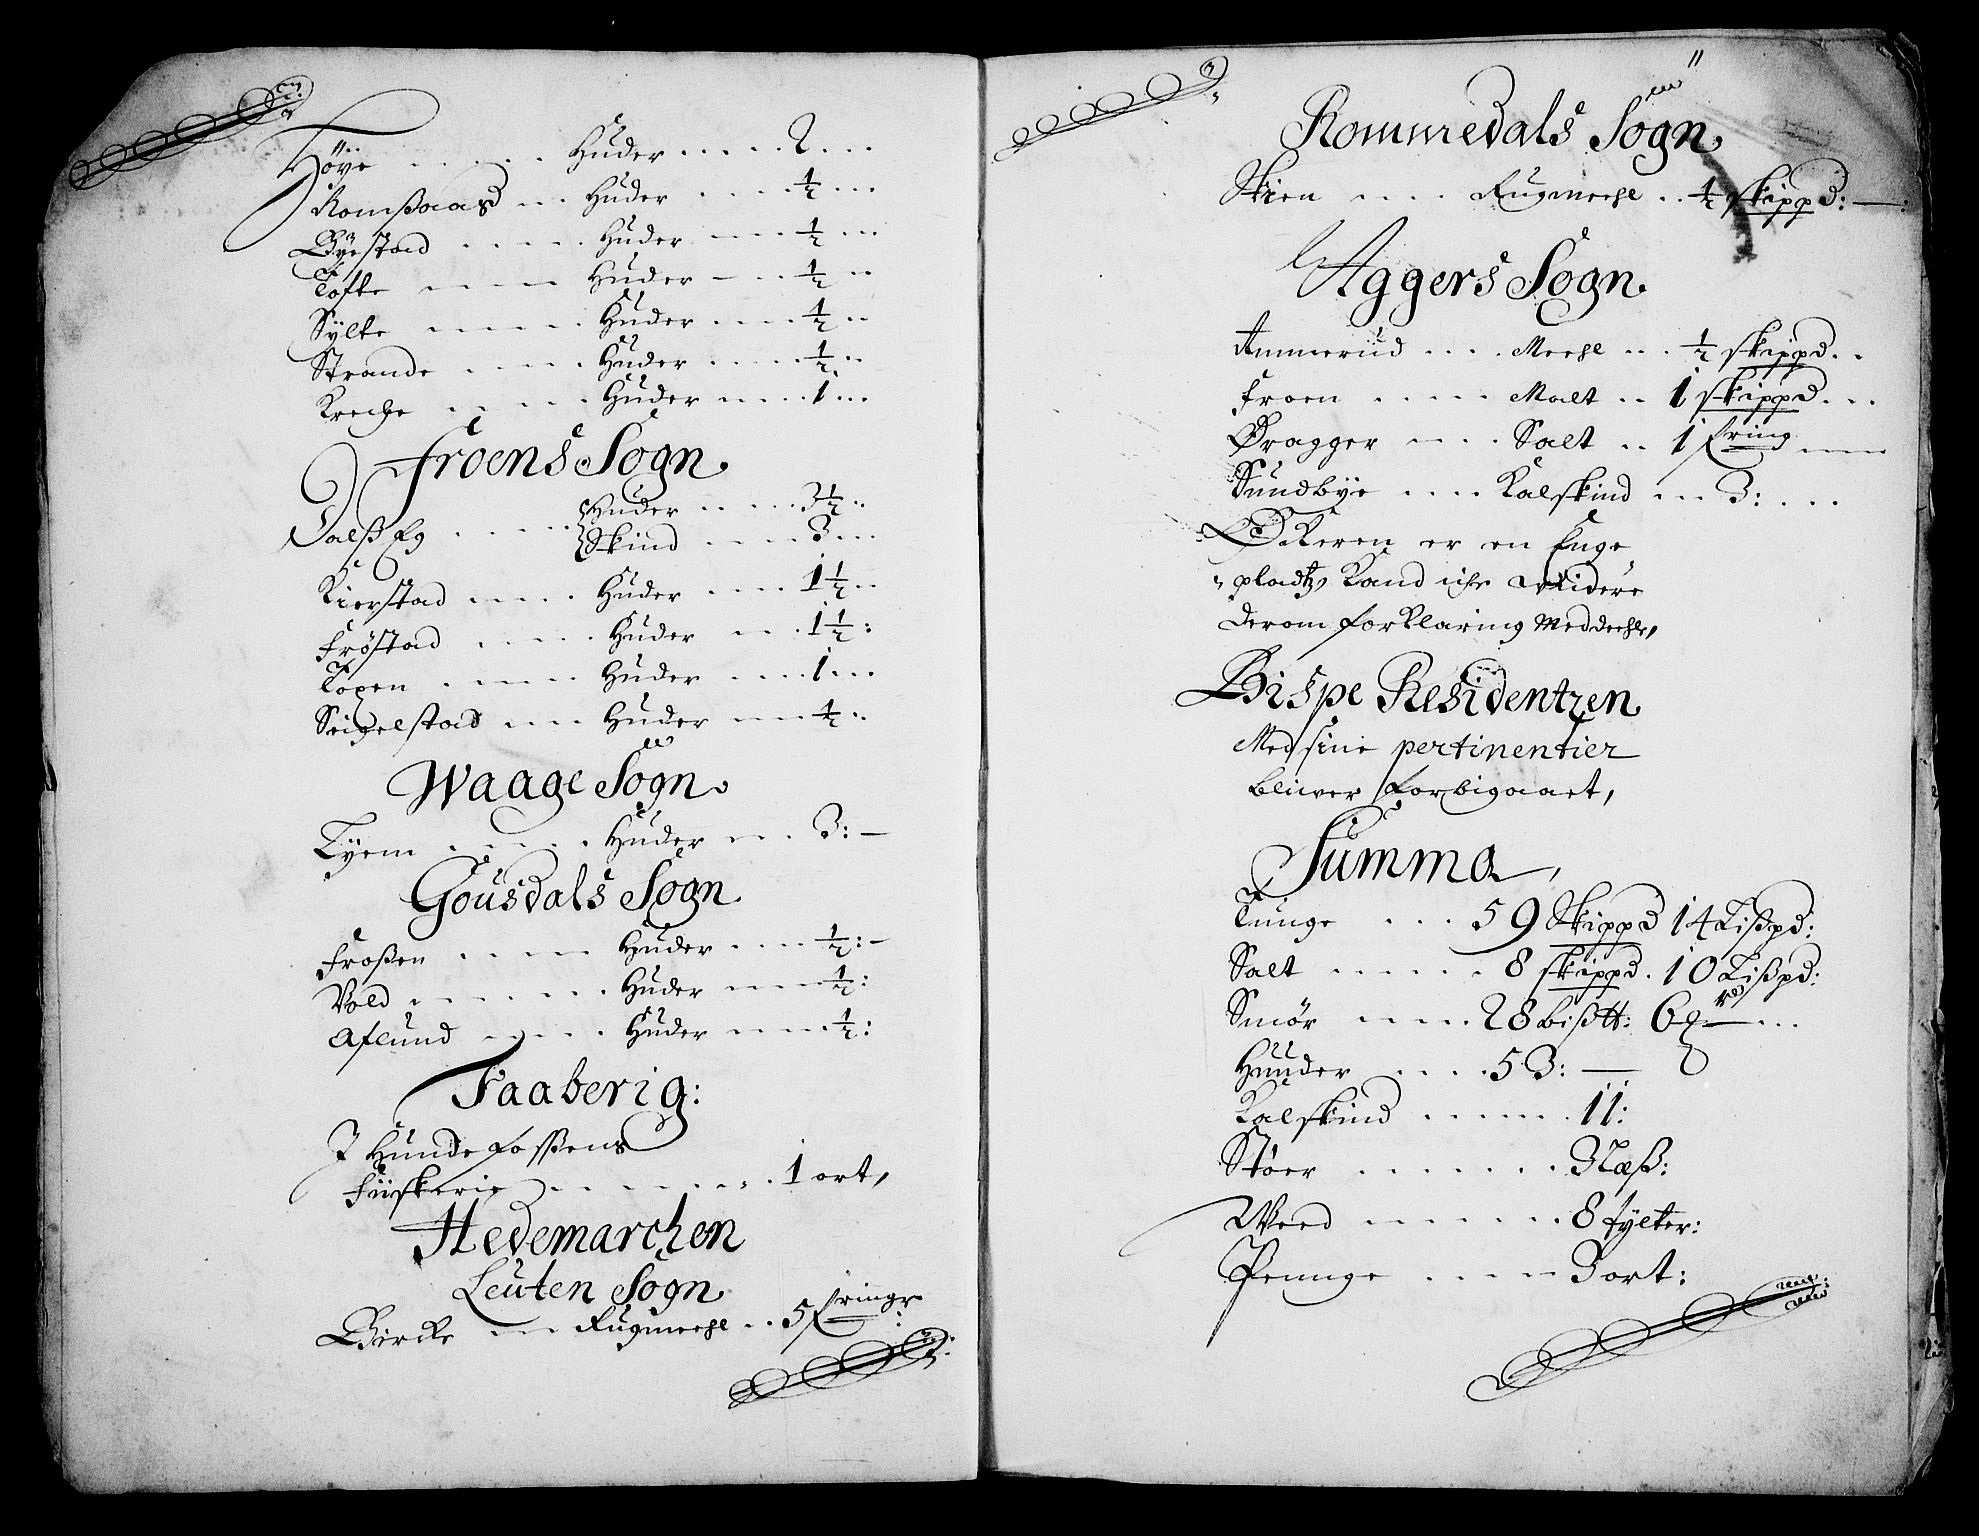 Höye . . . . . Huder . . . . . 2 . . .
Romßaas . . . Huder . . . . ½ . . .
Byestad . . . . . Huder . . . ½ . . .
Tofte . . . . Huder . . . ½ . .
Sylte . . . . . Huder . . . . ½ . .
Strande . . . . . Huder . . . . . ½ . .
Kreche . . . . . Huder . . . . . 1 . . .
Froens Sogn
Valß Eg . . . . . Huder . . . . . 3½ . .
Skind . . . . . 3 . . .
Kierstad . . . . . Huder . . . . 1½ . .
Frøstad . . . . . Huder . . . 1½ :
Topen . . . . . Huder . . . . 1 . . .
Seigelstad . . . . Huder . . . ½ : .
Waage Sogn
Tyem . . . . . Huder . . . 3 : —
Gousdals Sogn
Froßen . . . . . Huder . . . . ½ : —
Vold . . . . . . Huder . . . . ½ :
Aflund . . . . . Huder . . . . ½ :
Faaberig :
I Hundefossens
Fiiskerie . . . . . . . . 1 ort,
Hedemarchen
Leuten Sogn
Bircke . . . Rugmeehl . . 5 fringr :
11
Rommedals Sogn
Skien . . . . Rugmeehl . . ½ skippd : — :
Aggers Sogn
Ammerud . . . . Meehl . . . ½ skippd . .
Froen . . . . . Malt . . 1 skippd . . .
Bragger . . . . Salt . . 1 fring . . . .
Sundbye . . . . Kalfskind . . . 3 : . . .
Økeren er en Enge
pladtz, Kand iche widere
derom forklaring Meddeehle,
Bispe Residentzen
Med sine pertinentier
bliwer forbigaaet,
Summa,
Tunge . . . 59 Skippd 14 Lißpd :
Salt . . . . . . 8 skippd . 10 Lißpd :
Smør . . . . . 28 bißtt : 6
Huuder . . . . . 53 : —
Kalfskind . . . . . . 11 :
Støer . . . . . . . 3 Læß :
Weed . . . . . . . 8 tylter :
Penge . . . . . 3 ort :